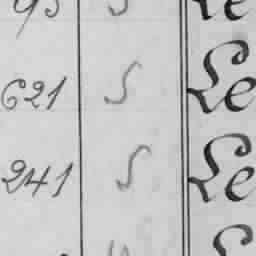 95 S Le
621 S Le
241 S Le